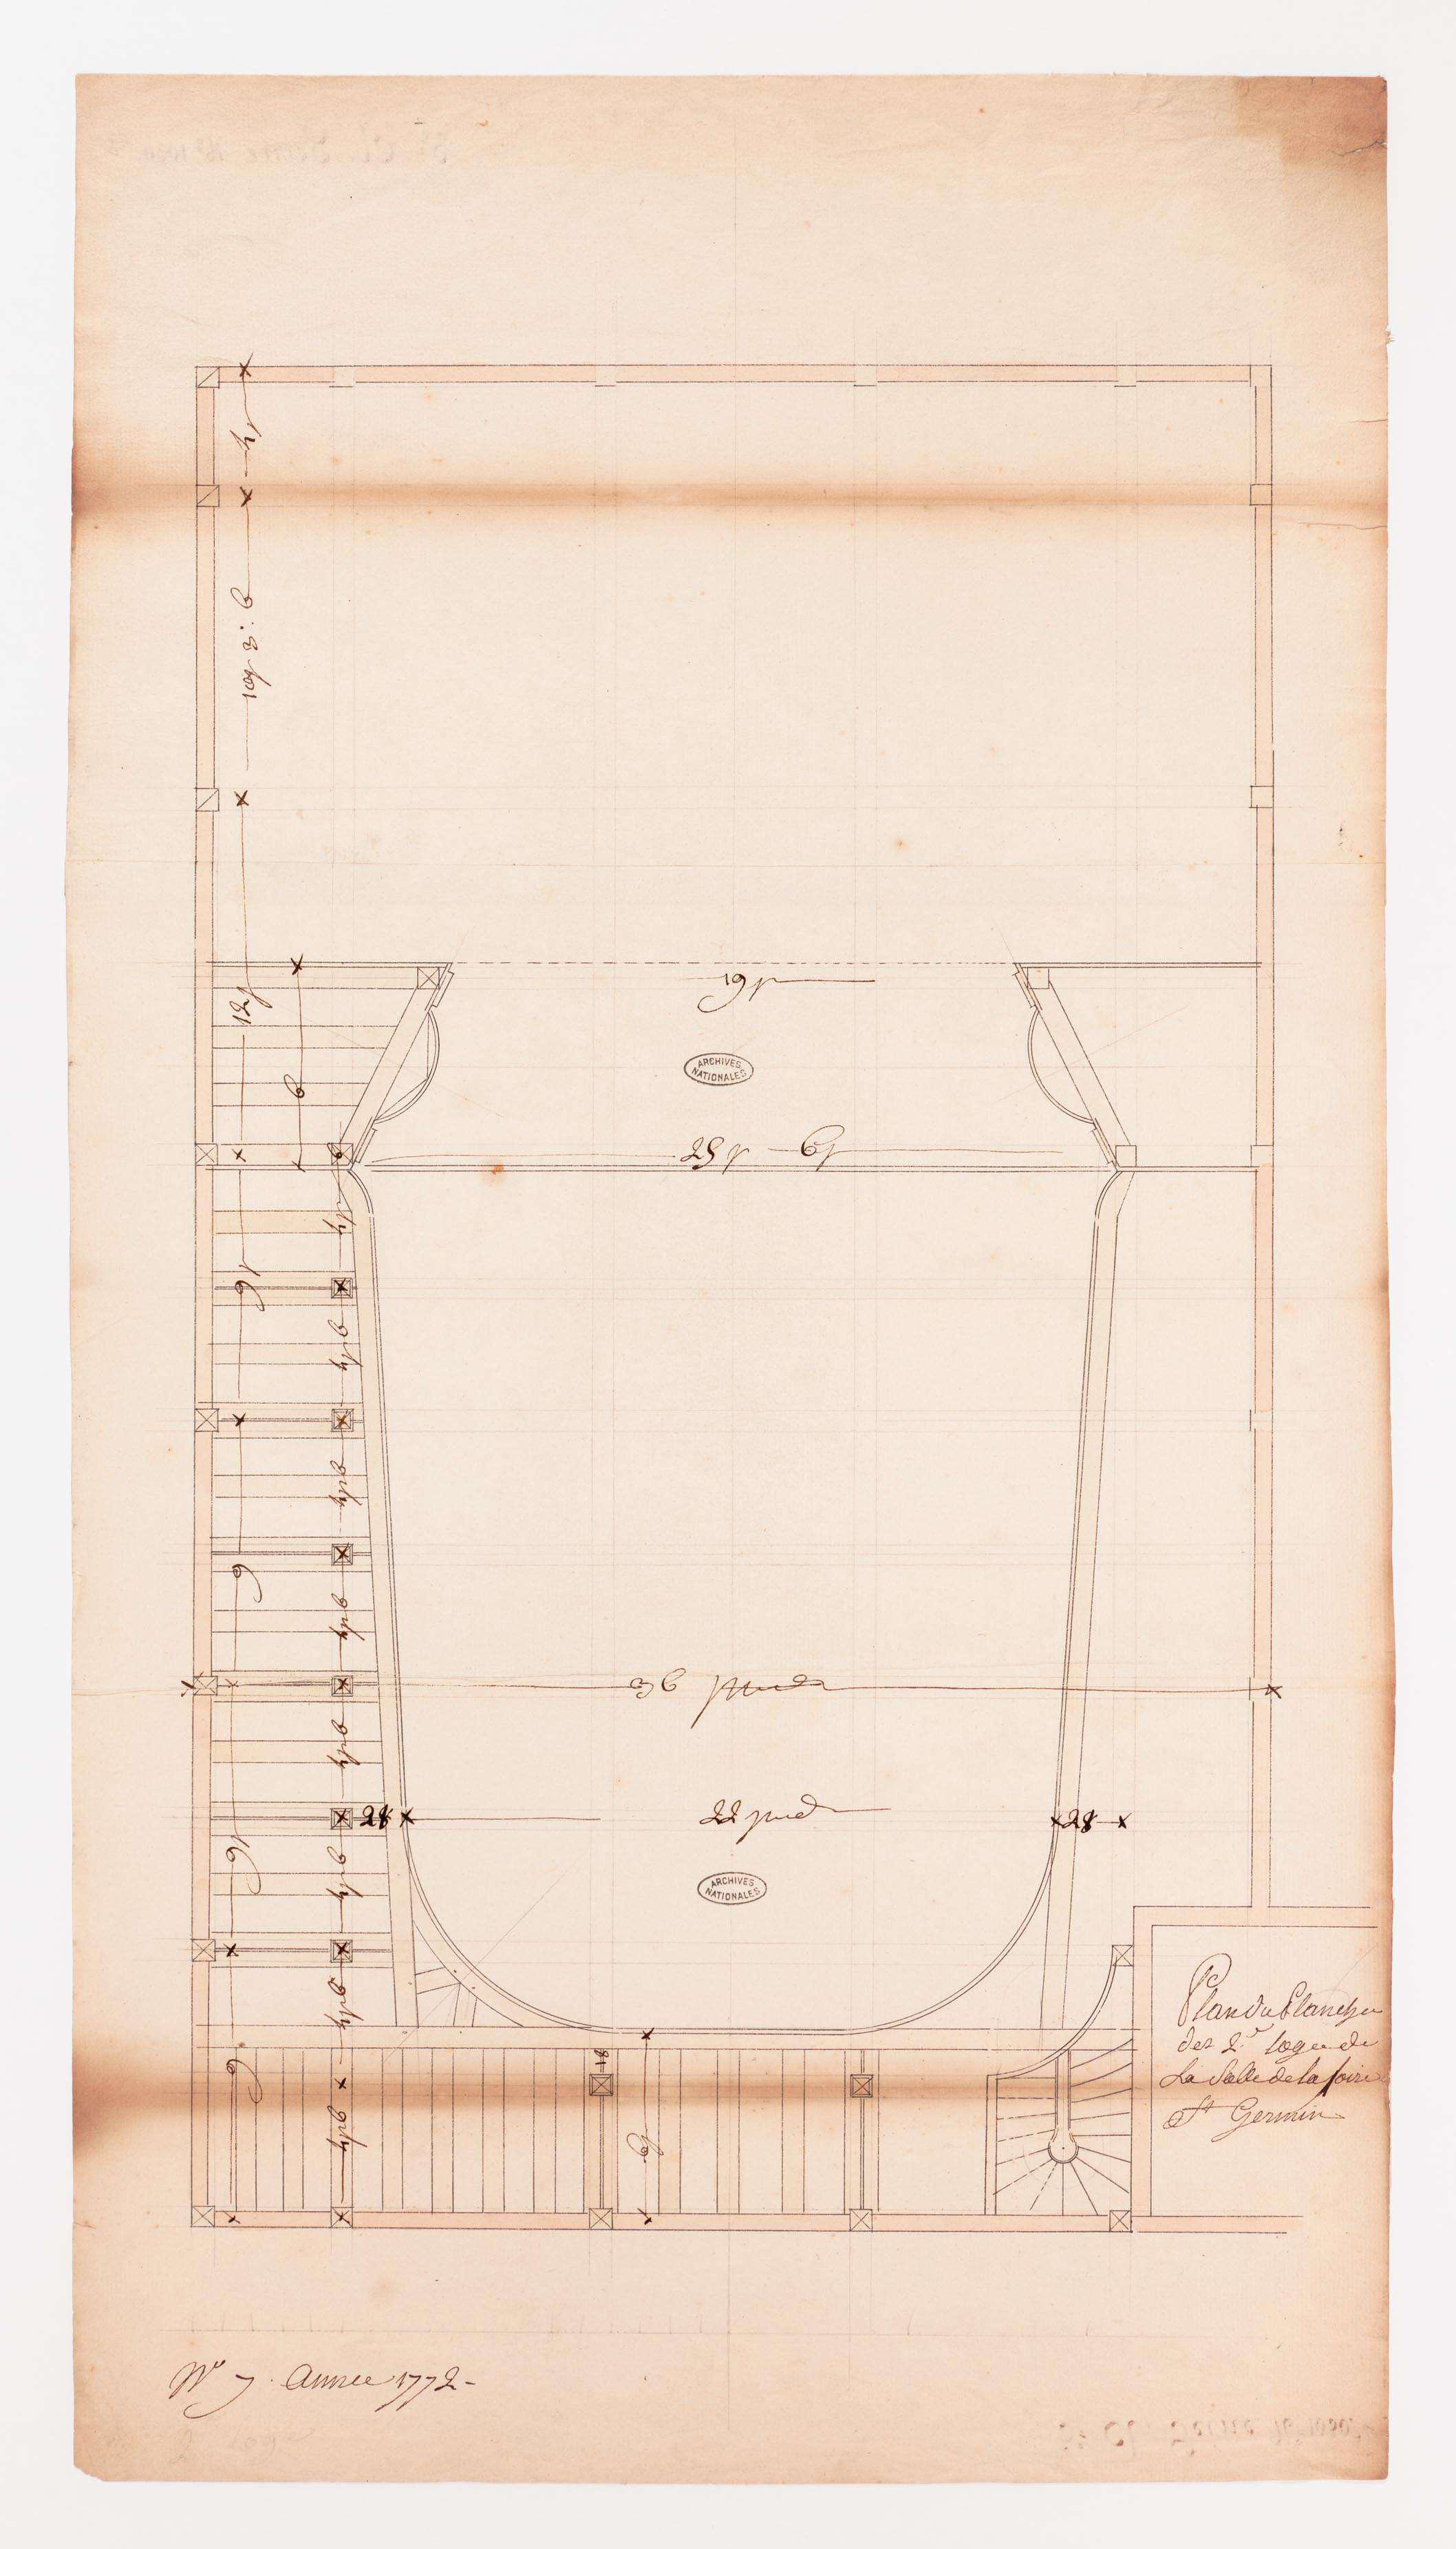 4p
10p 3 : 6
12p
6
19p
ARCHIVES
NATIONALES
25p 6p
4p
9p
4p6
4p6
9
4p6
36 pieds
4p6
28
22 pieds
28
9p
4p6
ARCHIVES
NATIONALES
4p6
9
18
6p
4p6
Plan du Plancher
des 2e loges de
La Salle de la foire
St Germin
No 7. Année 1772 -
2e loge